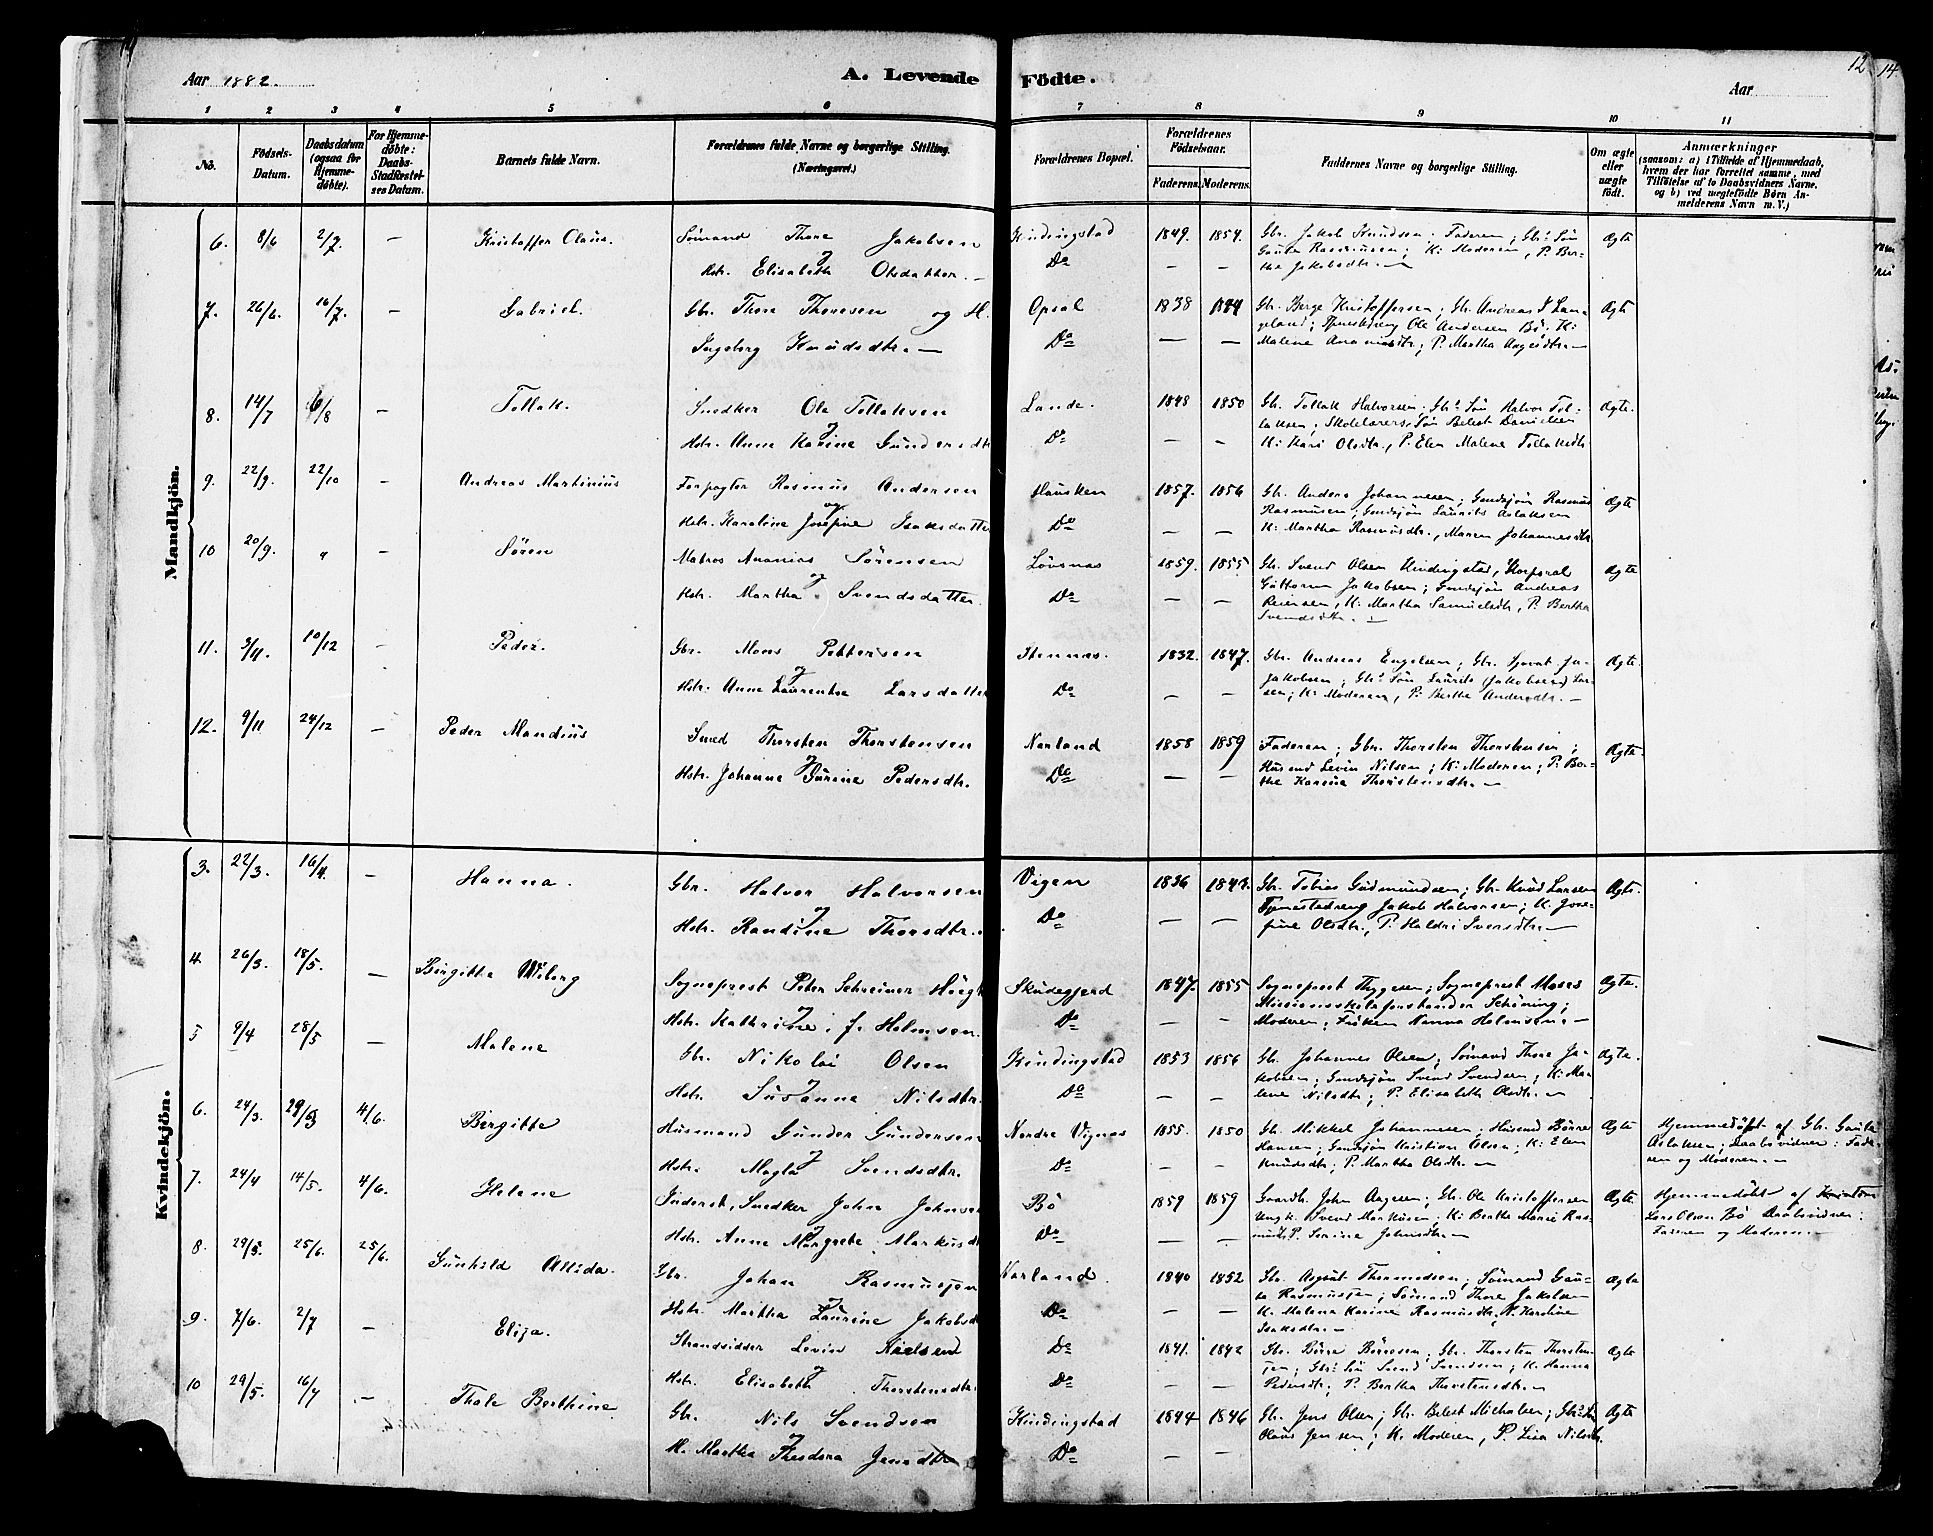 Aar 1882.
A. Levende Födte.
Aar
12 14
1 2 3 4 5 6 7 8 9 10 11
No.
Födsels-Datum.
Daabsdatum (ogsaa for Hjemme-döbte).
For Hjemme-döbte: Daabs-Stadfæstel-ses Datum.
Barnets fulde Navn.
Forældrenes fulde Navne og borgerlige Stilling. (Næringsvei.)
Forældrenes Bopæl.
Forældrenes Födselsaar.
Faderens. Moderens.
Faddernes Navne og borgerlige Stilling.
Om ægte eller uægte födt.
Anmærkninger
(saasom: a) i Tilfælde af Hjemmedaab,
hvem der har forrettet samme, med
Tilföielse af to Daabsvidners Navne,
og b) ved uægtefödte Börn An-
melderens Navn m. V.)
Mandkjön.
6. 8/6 2/7. — Kristoffer Olaus. Sömand Thore Jakobsen Kindingstad 1849. 1854. Gbr. Jakob Knudsen. Faderen; Gbr.s Sön Ægte
og Hstr. Elisabeth Olsdatter. — Do — — Gaute Rasmussen; K: Moderen, P. Ber-
the Jakobsdtr. —
7. 26/6 16/7. — Gabriel. Gbr. Thore Thoresen og H. Opsal 1838 1844 Gbr. Berge Kristoffersen; Gbr. Andreas Lan- Ægte
Ingeborg Knudsdtr. — Do — — geland; Tjenestedreng Ole Andersen Bö. K:
Malene Ananiasdtr; P. Martha Aagesdtr. —
8. 14/7 6/8 — Tollak. Snedker Ole Tollaksen Lande. 1848 1850 Gbr. Tollak Halvorsen, Gbr.s Sön Halvor Tol- Ægte.
og Hstr. Anne Karine Gundersdtr Do — — laksen; Skolelærers Sön Belest Danielsen
K: Kari Olsdtr., P. Elen Malene Tollaksdtr.
9. 22/9. 22/10 — Andreas Martinius Forpagter Rasmus Andersen Hausken 1857. 1856 Gbr. Anders Johannesen; Gaardsjön Rasmus Ægte
og Hstr. Karoline Josefine Isaksdatter Do — — Rasmussen; Gaardsjön Laurits Aslaksen
K: Martha Rasmusdtr., Maren Johannesdtr
10 20/9. " — Sören Matros Ananias Sörensen Lövsnæs 1859. 1855 Gbr. Svend Olsen Kindingstad, Korporal Ægte
og Hstr. Martha Svendsdatter. Do — — Guttorm Jakobsen; Gaardsjön Andreas
Reiersen, K: Martha Samuelsdtr, P. Bertha
Svendsdtr. —
11. 3/11. 10/12 — Peder. Gbr. Mons Pettersen Stennæs. 1832. 1847. Gbr. Andreas Engelsen; Gbr. Sjovat Ja- Ægte.
og Hstr. Anne Laurentse Larsdatter Do — — Jakobsen; Gbr.s Sön Laurits (Jakobsen) Lar-
sen; K: Moderen, P. Berthe Andersdtr. —
12. 9/11 24/12 — Peder Mandius Smed Thorsten Thorstensen Nærland 1858 1859 Faderen; Gbr. Thorsten Thorstensen; Ægte.
og Hstr. Johanne Gurine Pedersdtr. Do — — Husmd Levin Nilsen; K: Moderen; P. Ber-
the Karine Thorstensdtr. —
Kvindekjön.
3. 22/3. 16/4. — Hanna. Gbr. Halvor Halvorsen Vigen 1836 1843. Gbr. Tobias Gudmundsen; Gbr. Knud Larsen Ægte.
og Hstr. Randine Thorsdtr. Do — — Tjenestedreng Jakob Halvorsen; K. Jose-
fine Olsdtr., P. Haldri Iversdtr. —
4. 26/3. 18/5. — Birgitte Wiborg Sogneprest Peter Schreiner Höegh Skudegjerd 1847. 1855 Sogneprest Thygesen; Sogneprest Moses Ægte.
og Hstr. Kathrine, f. Holmsen Do — — Missionsskoleforstander Schöning;
Moderen; Fröken Nanna Holmsen. —
5 9/4 28/5 — Malene Gbr. Nikolai Olsen Kindingstad 1853 1856 Gbr. Johannes Olsen; Sömand Thore Ja- Ægte.
og Hstr. Susanna Nilsdtr. Do — — kobsen; Gaardsjön Svend Svendsen; K: Ma-
lene Nilsdtr; P. Elisabeth Olsdtr. —
6. 24/3. 29/3 4/6. Birgitte Husmand Gunder Gundersen Nordre Vignæs 1855. 1850 Gbr. Mikkel Johannesen; Husmd Börre Ægte Hjemmedöbt af Gbr. Gaute
og Hstr. Magla Svendsdtr. Do — — Hansen; Gaardsjön Kristian Olsen; K: Elen Aslaksen; Daabsvidner: Fade-
Knudsdtr; P. Martha Olsdtr. — ren og Moderen. —
7. 24/4 14/5. 4/6. Helene Inderst, Snedker John Johnsen Bö 1859 1859 Gaardb. John Aagesen; Gbr. Ole Kristoffersen Ægte. Hjemmedöbt af
og Hstr. Anne Margrete Markusdtr Do — — Ungk. Svend Markusen; K: Berthe Marie Ras- Lars Olsen Bö Daabsvidner:
musd, P. Serine Johnsdtr. — Faderen og Moderen. —
8. 29/5. 25/6. 25/6. Gunhild Allida. Gbr. Johan Rasmussen Karland. 1840 1852 Gbr. August Thormodsen; Sömand Gau- Ægte
og Hstr. Martha Laurine Jakobsd Do — — te Rasmussen; Sömand Thore Jakobsen
K. Malena Karine Rasmusdtr, P. Karoline
Isaksdtr. —
9. 7/6. 2/7 — Eliza. Strandsidder Levin Nielsen Do 1841. 1842 Gbr. Börre Börresen; Gbr. Thorsten Thorsten- Ægte
og Hstr. Elisabeth Thorstensdtr. Do — — sen; Gbr.s Sön Svend Svendsen; K. Hanna
Pedersdtr; P. Bertha Thorstensdtr. —
10 29/5. 16/7 — Thale Berthine Gbr. Nils Svendsen Kindingstad 1844 1846 Gbr. Jens Olsen; Gbr. Belest Michalsen; Gbr.s Sön Ægte
og H. Martha Theodora Jensdtr Do — — Olaus Jensen; K. Moderen, P. Lisa Nilsdtr.